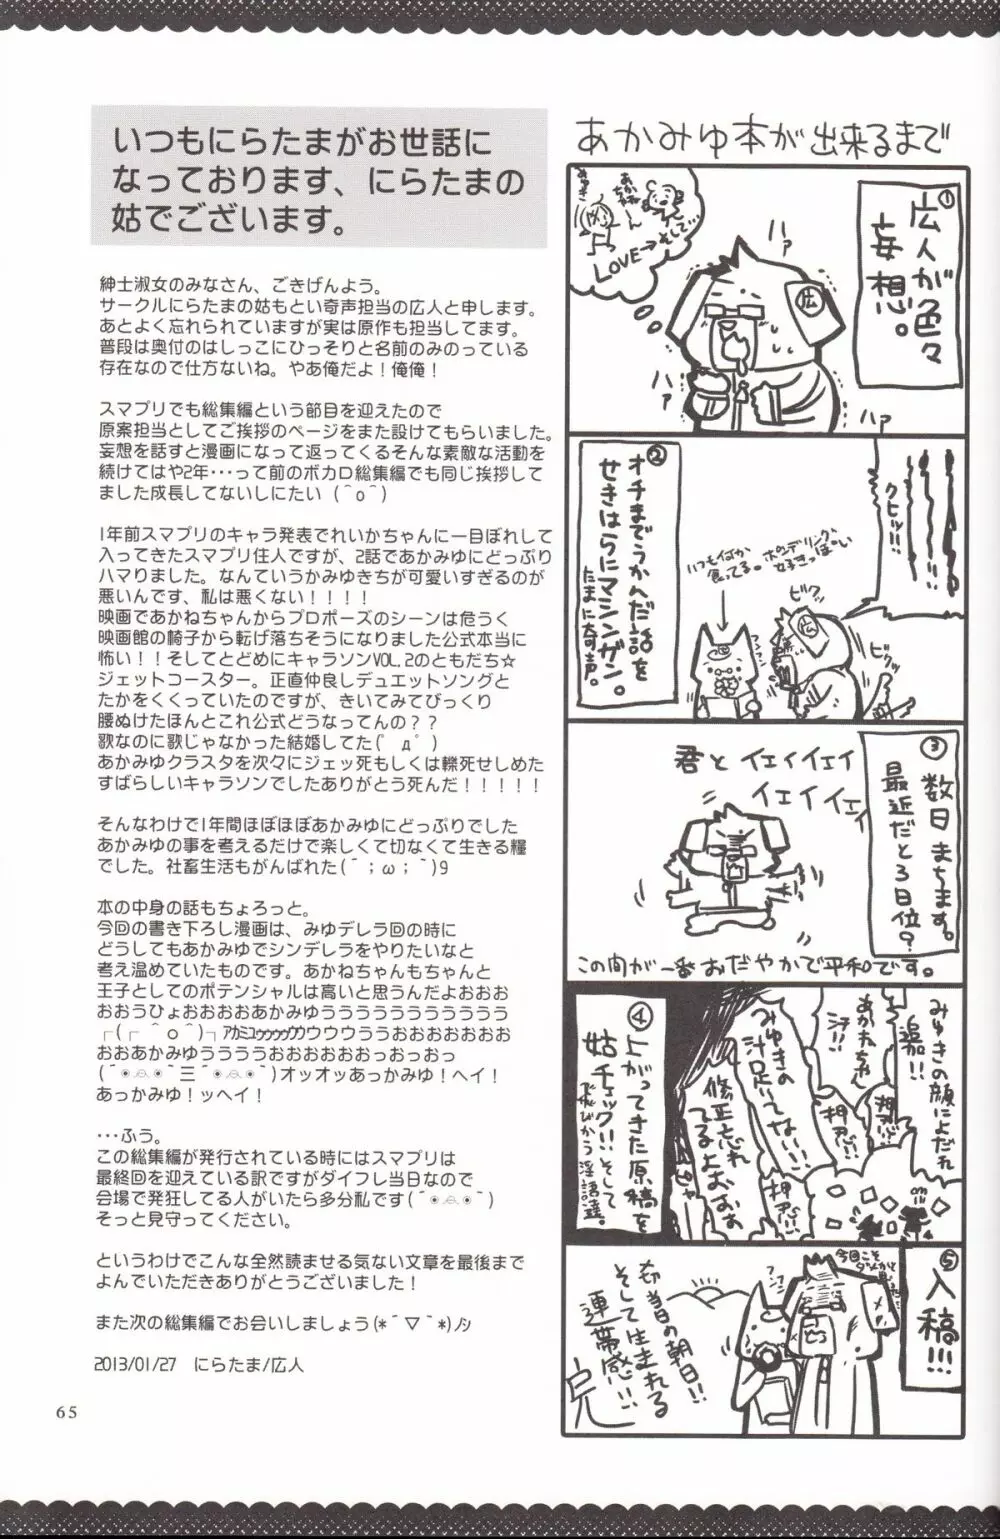 いつもにらたまがお世話に
なっております、にらたまの
姑でございます。
紳士淑女のみなさん、ごきげんよう。
サークルにらたまの姑もとい奇声担当の広人と申します。
あとよく忘れられていますが実は原作も担当してます。
普段は奥付のはしっこにひっそりと名前のみのっている
存在なので仕方ないね。やあ俺だよ！俺俺！
スマプリでも総集編という節目を迎えたので
原案担当としてご挨拶のページをまた設けてもらいました。
妄想を話すと漫画になって返ってくるそんな素敵な活動を
続けてはや2年･･･って前のボカロ総集編でも同じ挨拶して
ました成長してないしにたい（＾o＾）
1年前スマプリのキャラ発表でれいかちゃんに一目ぼれして
入ってきたスマプリ住人ですが、2話であかみゆにどっぷり
ハマりました。なんていうかみゆきちが可愛いすぎるのが
悪いんです、私は悪くない！！！！
映画であかねちゃんからプロポーズのシーンは危うく
映画館の椅子から転げ落ちそうになりました公式本当に
怖い！！そしてとどめにキャラソンVOL.2のともだち☆
ジェットコースター。正直仲良しデュエットソングと
たかをくくっていたのですが、きいてみてびっくり
腰ぬけたほんとこれ公式どうなってんの？？
歌なのに歌じゃなかった結婚してた(ﾟдﾟ)
あかみゆクラスタを次々にジェッ死もしくは轢死せしめた
すばらしいキャラソンでしたありがとう死んだ！！！！！
そんなわけで1年間ほぼほぼあかみゆにどっぷりでした
あかみゆの事を考えるだけで楽しくて切なくて生きる糧
でした。社畜生活もがんばれた(´；ω；`)9
本の中身の話もちょろっと。
今回の書き下ろし漫画は、みゆデレラ回の時に
どうしてもあかみゆでシンデレラをやりたいなと
考え温めていたものです。あかねちゃんもちゃんと
王子としてのポテンシャルは高いと思うんだよおおお
おおうひょおおおおあかみゆうううううううううううう
┌(┌ ＾o＾)┐ｱｶﾐﾕｩｩｩｩｩｩウウウウううおおおおおおお
おおおあかみゆううううおおおおおおっおっおっ
(´◉◠◉`三´◉◠◉`)オッオッあっかみゆ！ヘイ！
あっかみゆ！ッヘイ！
･･･ふう。
この総集編が発行されている時にはスマプリは
最終回を迎えている訳ですがダイフレ当日なので
会場で発狂してる人がいたら多分私です(´◉◠◉`)
そっと見守ってください。
というわけでこんな全然読ませる気ない文章を最後まで
よんでいただきありがとうございました！
また次の総集編でお会いしましょう(*´▽`*)ﾉｼ
2013/01/27　にらたま/広人
65
あかみゆ本が出来るまで
①広人が色々
妄想。
みゆき
あかねちゃーん
LOVE→そして…
ハァ
ハァ
ハァ
広
②オチまでうかんだ話を
せきはらにマシンガン。
たまに奇声。
クヒッ!!
いつも何か
食ってる。ポンデリング
好きっぽい
ビクッ
ビクッ
広
③数日まちます。
最近だと3日位?
君とイェイイェイ
イェイイェイ
この間が一番おだやかで平和です。
④上がってきた原稿を
姑チェック!!そして
飛びかう淫語達。
みゆきの顔によだれ
追加!!
あかねちゃん
汗!!
みゆきの
汁足りてない!!
修正忘れ
てるよおおお
押忍!
押忍!!
押忍!!
⑤入稿!!!
今回こそ
ダメかと
思った…
祝当日の朝日!!
そして生まれる
連帯感!!
完